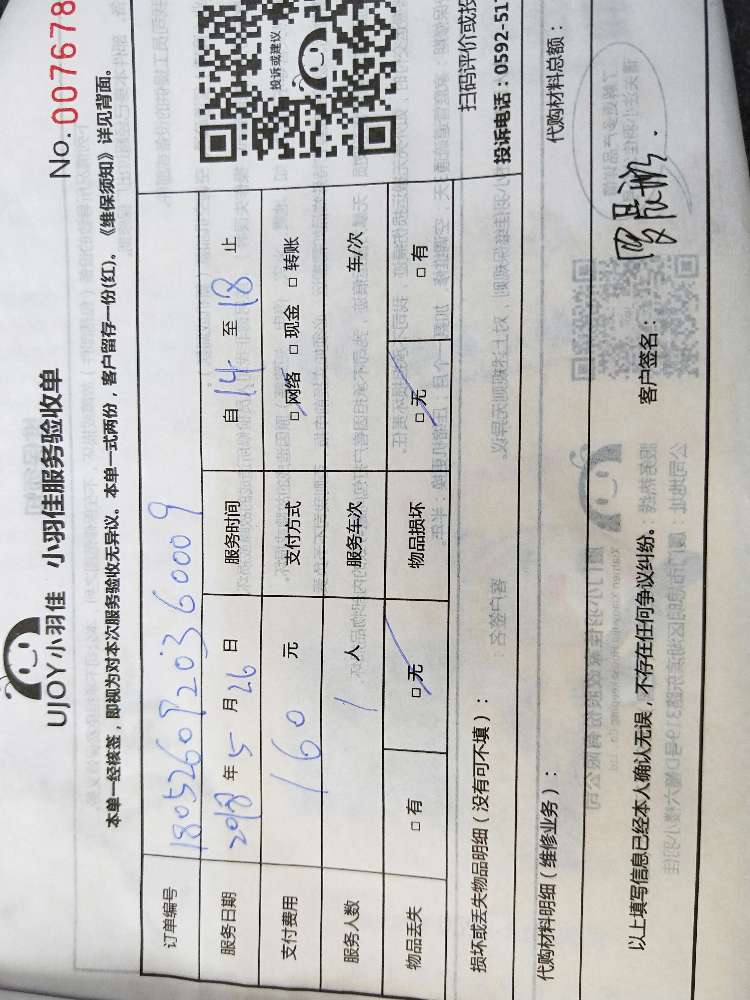 UJOY小羽佳 小羽佳服务验收单
No. 007678
本单一经核签，即视为对本次服务验收无异议。本单一式两份，客户留存一份(红)。《维保须知》详见背面。
订单编号
服务日期 2018 年 5 月 26 日 服务时间 自 14 至 18 止
支付费用 160 元 支付方式 □ 网络 □ 现金 □ 转账
服务人数 1 人 服务车次 车/次
物品丢失 □ 有 □ 无 物品损坏 □ 无 □ 有
投诉或建议
扫码评价或投
投诉电话：0592-517
损坏或丢失物品明细（没有可不填）：
代购材料明细（维修业务）： 代购材料总额：
以上填写信息已经本人确认无误，不存在任何争议纠纷。 客户签名：